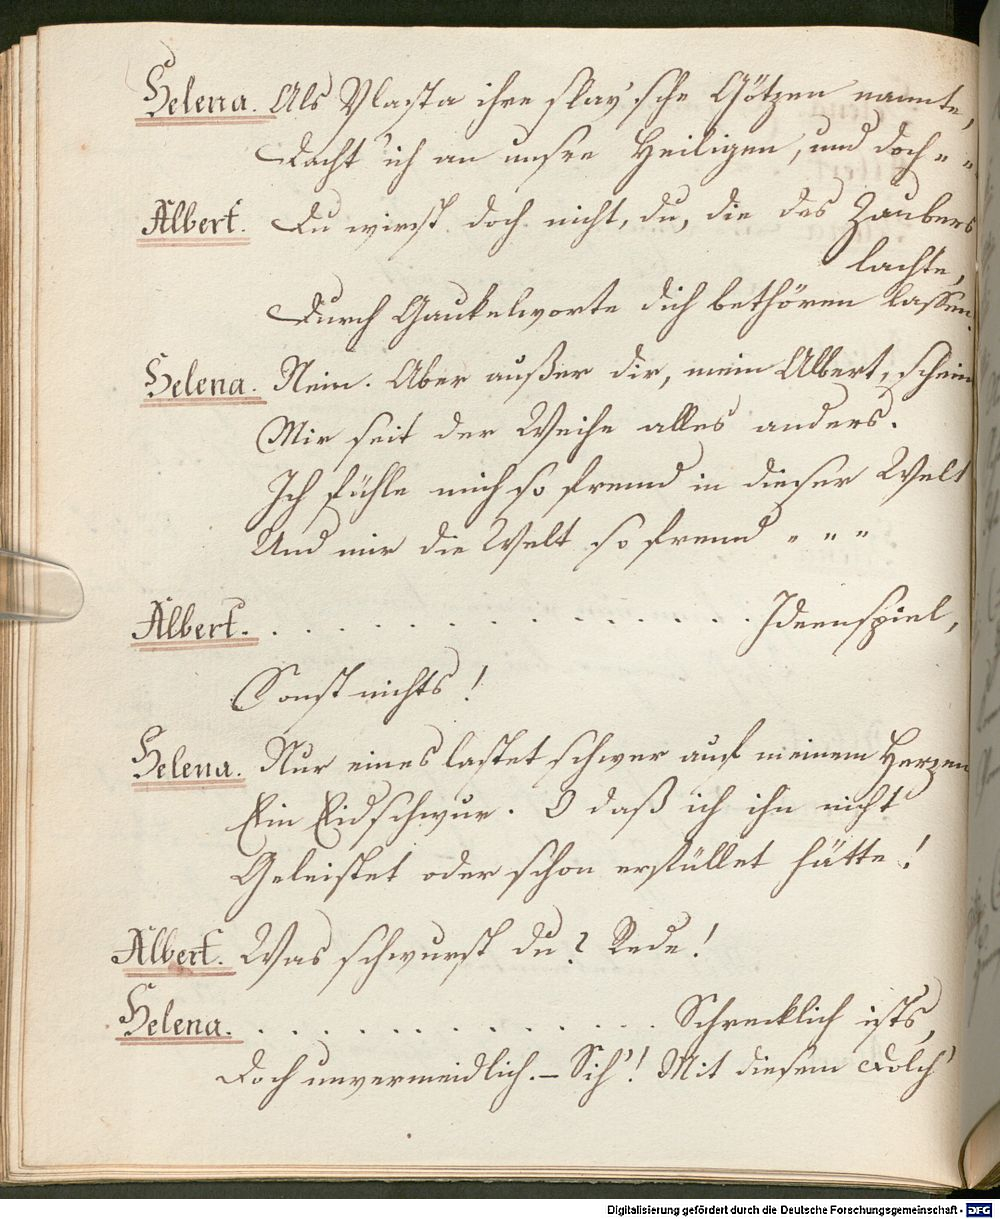 Helena. Als Vlasta ihre slav'sche Götzen nannte,
Dacht' ich an unsre Heiligen, und doch - -
Albert. Du wirst doch nicht, du, die des Zaubers
lachte,
Durch Gaukelworte dich bethören lassen.
Helena. Nein. Aber außer dir, mein Albert, schein
Mir seit der Weihe alles anders.
Ich fühle mich so fremd in dieser Welt
Und mir die Welt so fremd - - -
Albert. . . . . . . . . . . . . . . . Ideenspiel,
Sonst nichts!
Helena. Nur eines lastet schwer auf meinem Herzen
Ein Eidschwur. O daß ich ihn nicht
Geleistet oder schon erfüllet hätte!
Albert. Was schwurst du? Rede!
Helena. . . . . . . . . . . . . . Schrecklich ists,
Doch unvermeidlich. – Sih'! Mit diesem Dolch
Digitalisierung gefördert durch die Deutsche Forschungsgemeinschaft - DFG